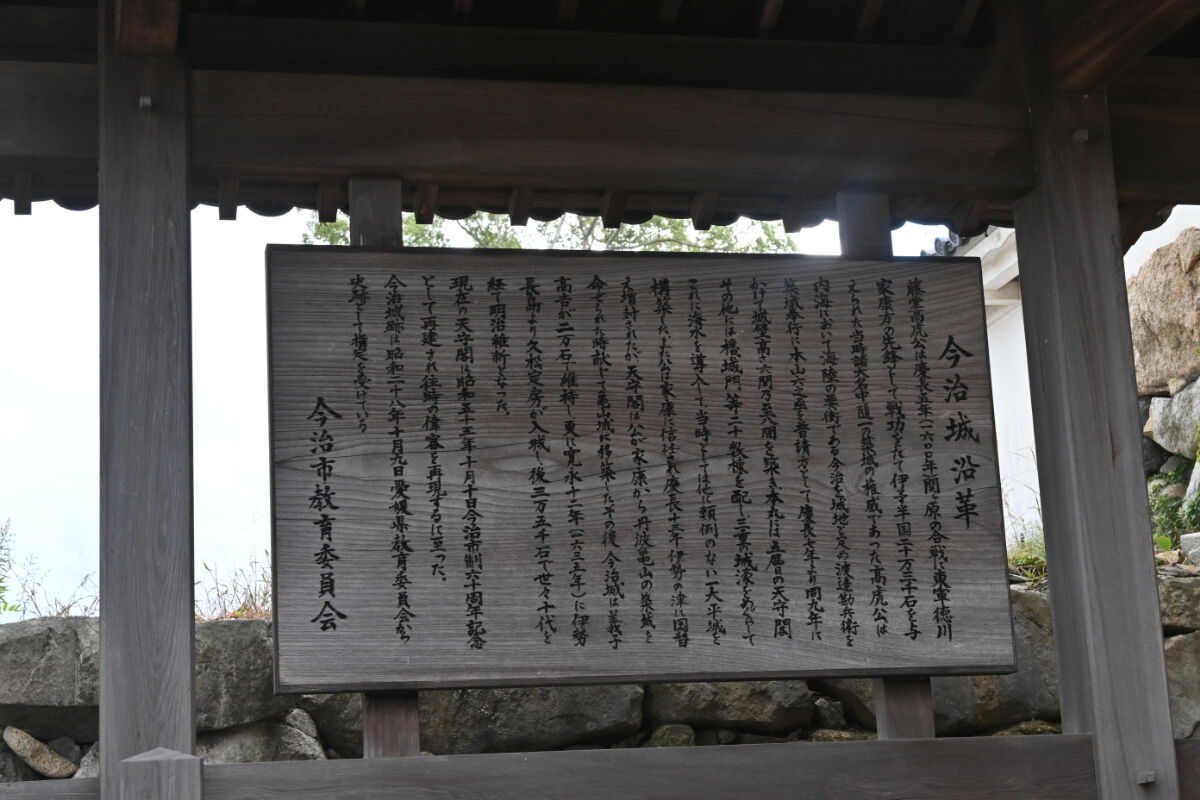 今治城沿革
藤堂高虎公は慶長五年(一六〇〇年)関ヶ原の合戦に東軍徳川
家康方の先鋒として戦功をたて伊予半国二十万三千石を与
えられた当時諸大名中随一の築城の権威であった高虎公は
内海において海陸の要衝である今治を城地と定め渡辺勘兵衛を
築城奉行に木山六之丞を普請方として慶長七年より同九年に
かけて城壁高さ六間乃至八間を築き本丸には五層の天守閣
その他には櫓城門等二十数棟を配し三重の城濠をめぐらして
これに海水を導入して当時としては他に類例のない一大平城を
構築したまた公は家康に信任され慶長十三年伊勢の津に国替
え増封されたが天守閣は公が家康から丹波亀山の築城を
命ぜられた時献じて亀山城に移築したその後今治城は養子
高吉が二万石で維持し更に寛永十二年(一六三五年)に伊勢
長島より久松定房が入城し後三万五千石で世々十代を
経て明治維新となった。
現在の天守閣は昭和五十五年十月十日今治市制六十周年記念
として再建され往時の偉容を再現するに至った。
今治城跡は昭和二十八年十月九日愛媛県教育委員会から
史跡として指定を受けている
今治市教育委員会